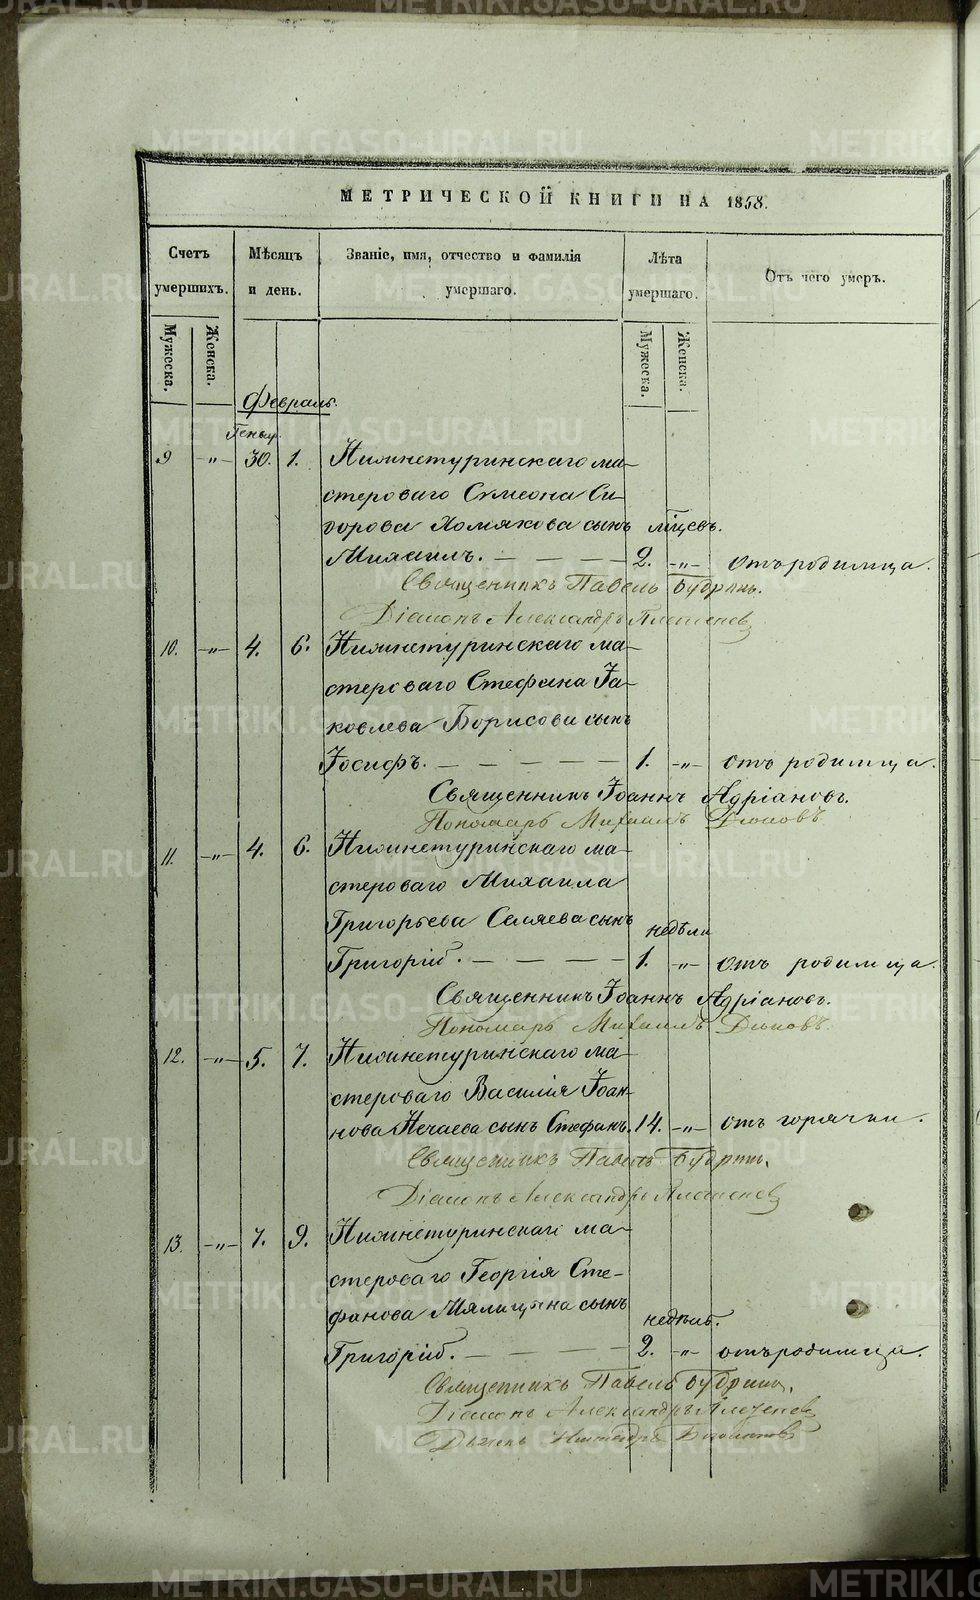 МЕТРИЧЕСКОЙ КНИГИ НА 1858.
Счетъ умершихъ.
Мѣсяцъ и день.
Званіе, имя, отчество и фамилія умершаго.
Лѣта умершаго.
Отъ чего умеръ.
Мужеска.
Женска.
Мужеска.
Женска.
Февраль.
Генвар.
9 -„- 30. 1. Нижнетуринскаго ма-
стероваго Симеона Си-
дорова Хомякова сынъ мѣсцевъ.
Михаилъ. 2. -„- отъ родимца.
Священникъ Павелъ Будринъ.
Діаконъ Александръ
10. -„- 4. 6. Нижнетуринскаго ма-
стероваго Стефана Іа-
ковлева Борисова сынъ
Іосифъ. 1. -„- отъ родимца.
Священникъ Іоаннъ Адріановъ.
Пономарь Михаилъ
11. -„- 4. 6. Нижнетуринскаго ма-
стероваго Михаила
Григорьева Селяева сынъ недѣли
Григорій. 1. -„- отъ родимца.
Священникъ Іоаннъ Адріановъ.
Пономарь Михаилъ
12. -„- 5. 7. Нижнетуринскаго ма-
стероваго Василія Іоан-
нова Нечаева сынъ Стефанъ. 14. -„- отъ горячки.
Священникъ Павелъ Будринъ.
Діаконъ Александръ
13. -„- 7. 9. Нижнетуринскаг ма-
стероваго Георгія Сте-
фанова Мялицина сынъ недѣль.
Григорій. 2. -„- отъ родимца.
Священникъ Павелъ Будринъ.
Діаконъ Александръ
METRIKI.GASO-URAL.RU